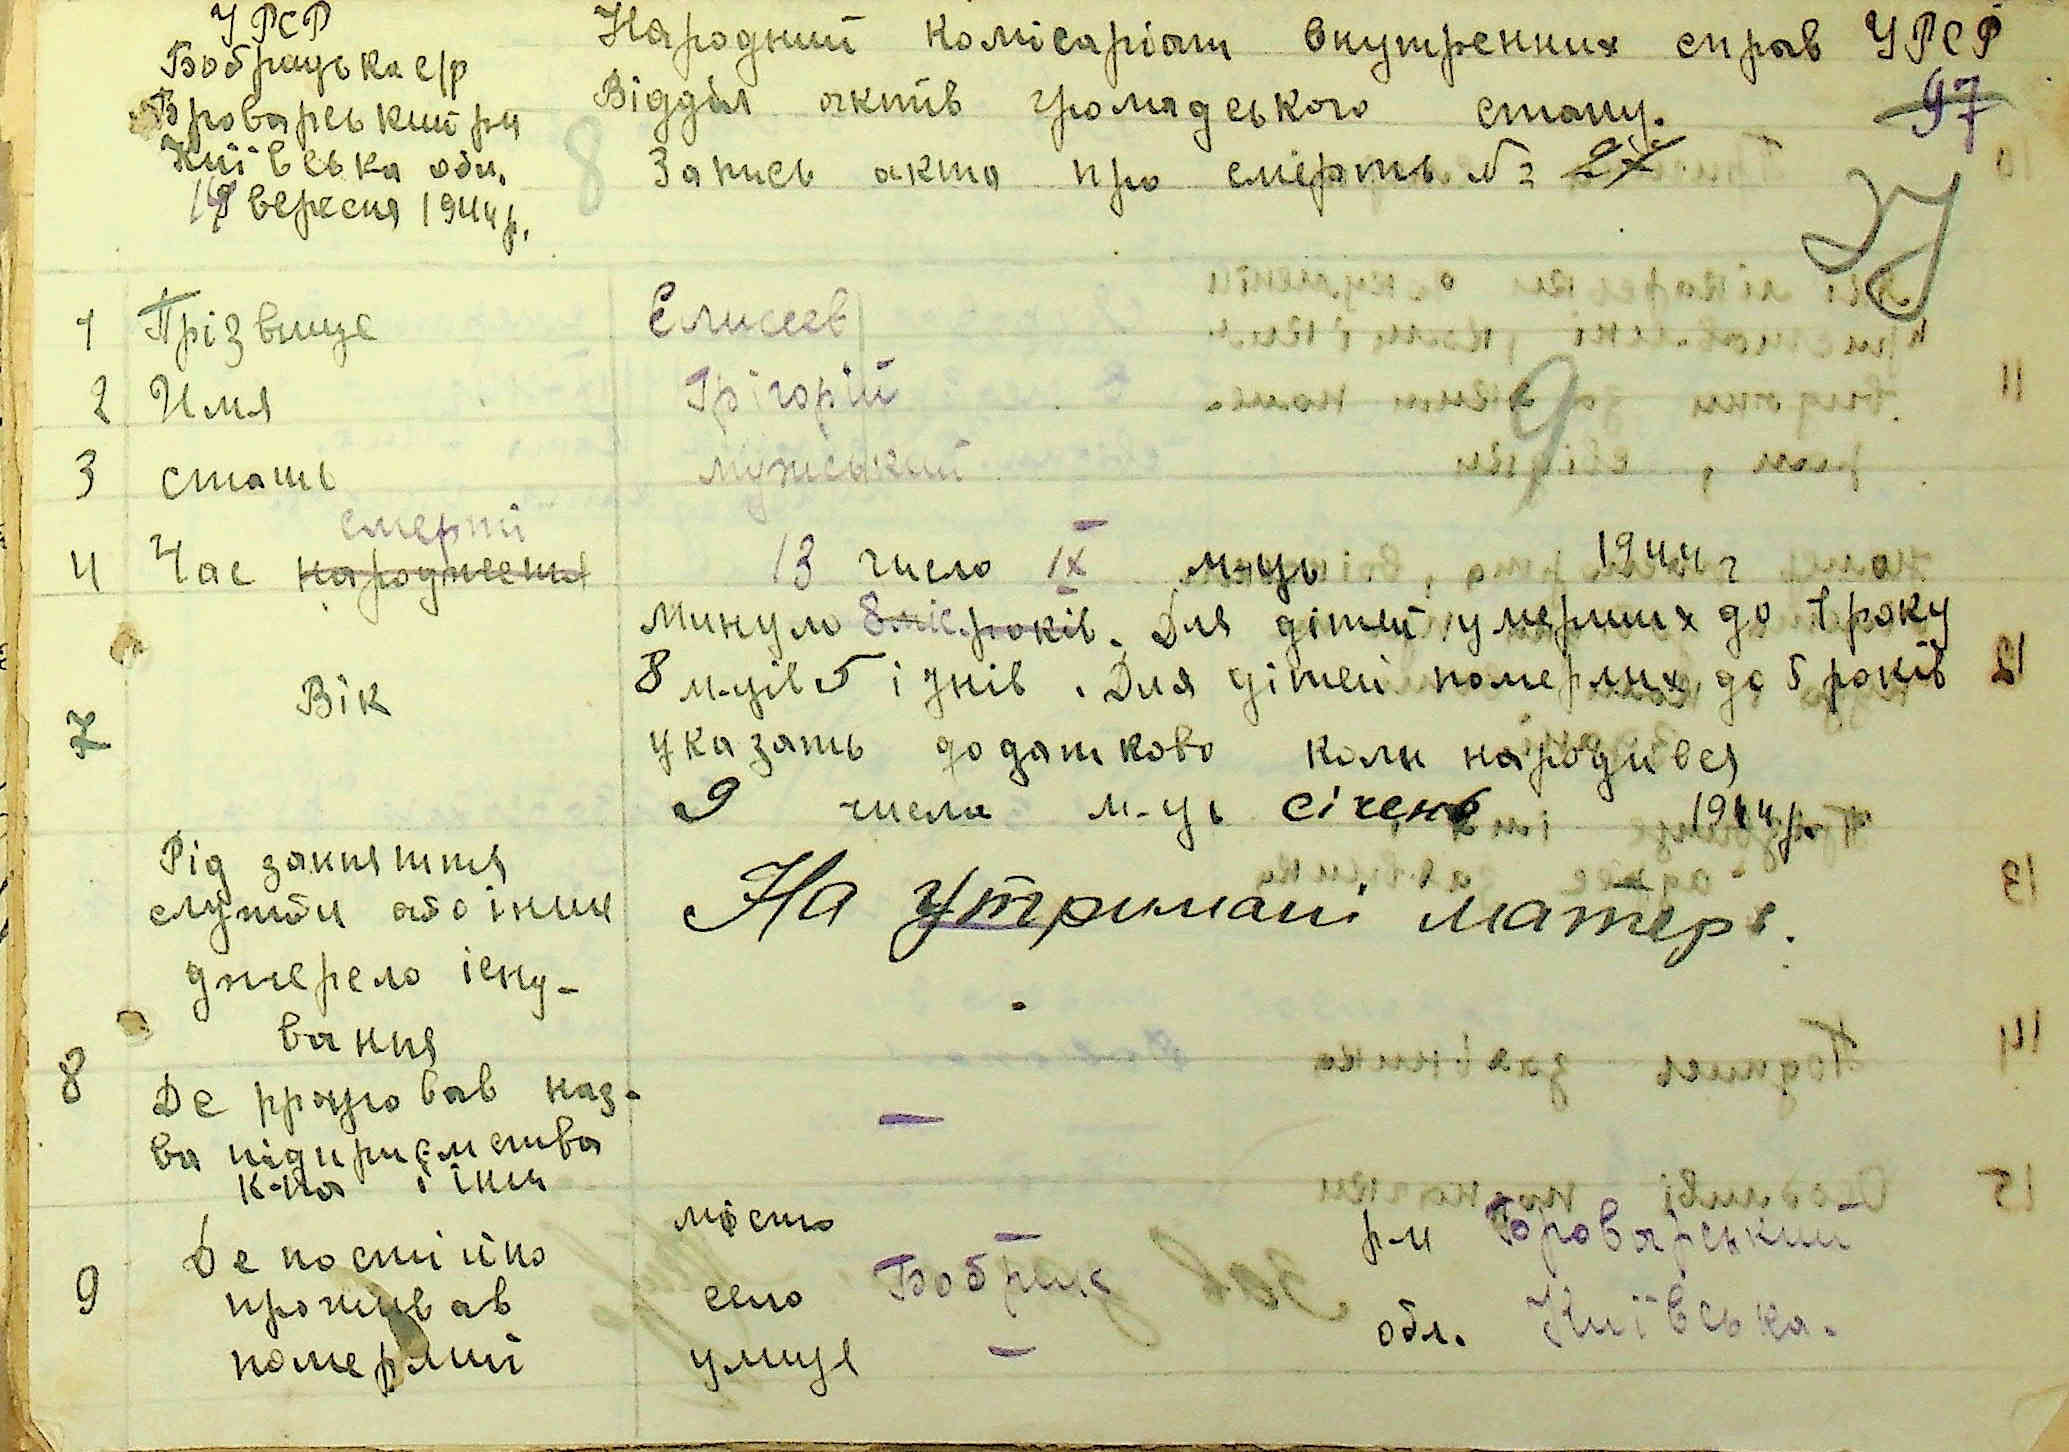 УРСР
Бобрицька с/р
Броварський р-н
Київська обл.
18 вересня 1944 р.
Народний комісаріат внутренних справ УРСР
Відділ актів громадського стану.
97
Запись акта про смерть № 27
27
8
9
1 Прізвище Єлисеев
2 Имя Грігорій
3 стать мужський
смерті
4 Час народження 13 число IX м-ць 1944 г
Минуло 8 міс. років. Для дітей умерших до 1 року
8 м-ців 5 і днів. Для дітей померлих до 5 років
7 Вік
указать додатково коли народився
9 числа м-ць січень 1944 р.
Рід заняття
служби або інших
джерело існу-
вання
На утримані матері.
8
Де працював наз-
ва підприємства
к-па і інш
—
9 Де постійно
проживав
померлий
місто — р-н Броварський
село Бобрик обл. Київська.
улице —